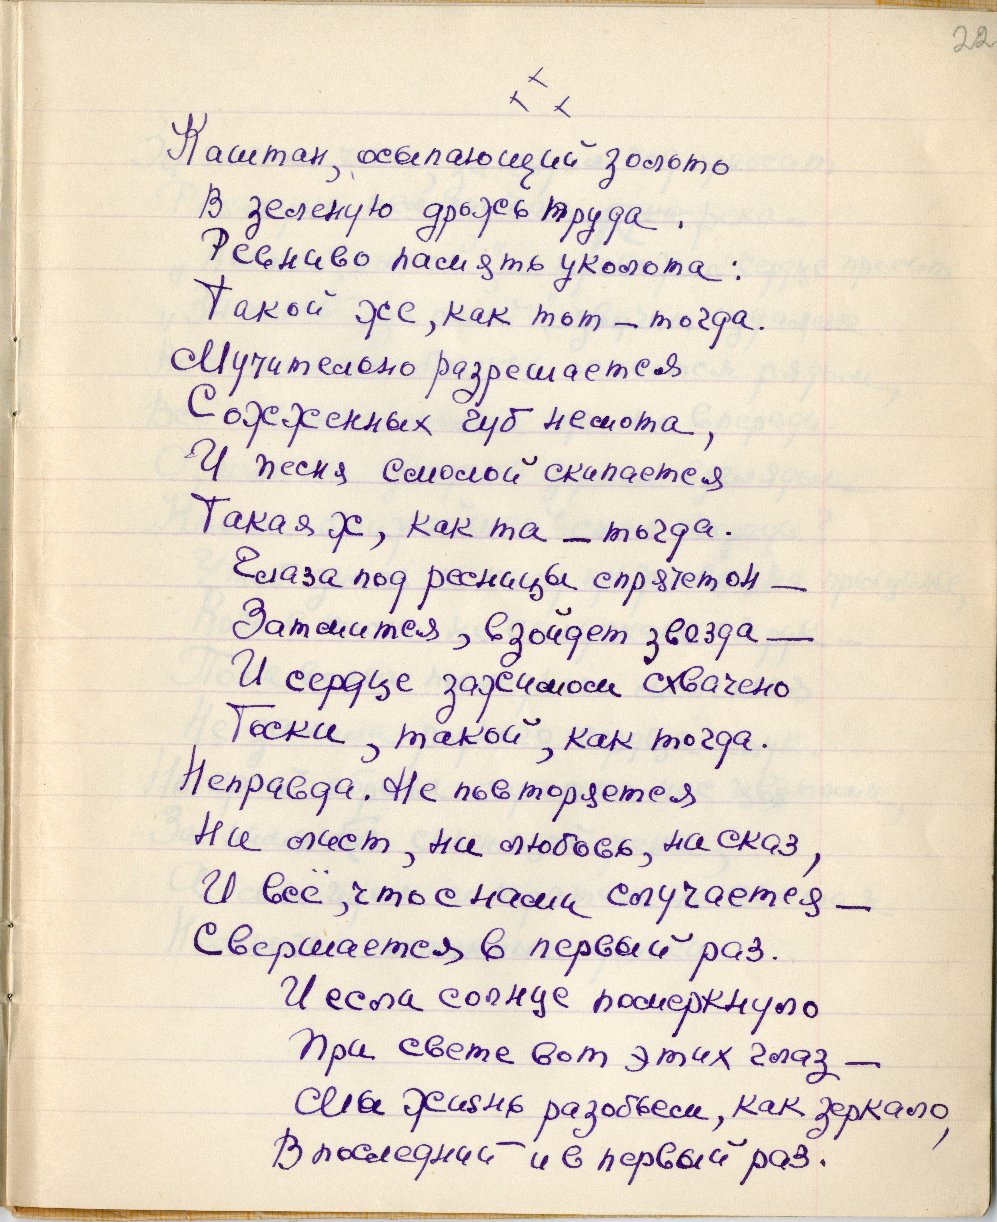 22
х х х
Каштан, осыпающий золото
В зеленую дрожь пруда.
Ревниво память уколота:
Такой же, как тот – тогда.
Мучительно разрешается
Сожженных губ немота,
И песня смолой скипается
Такая ж, как та – тогда.
Глаза под ресницы спрячет он –
Затмится, взойдет звезда –
И сердце зажимом схвачено
Тоски, такой, как тогда.
Неправда. Не повторяется
Ни лист, ни любовь, ни сказ,
И всё, что с нами случается –
Свершается в первый раз.
И если солнце померкнуло
При свете вот этих глаз –
Мы жизнь разобьем, как зеркало,
В последний и в первый раз.